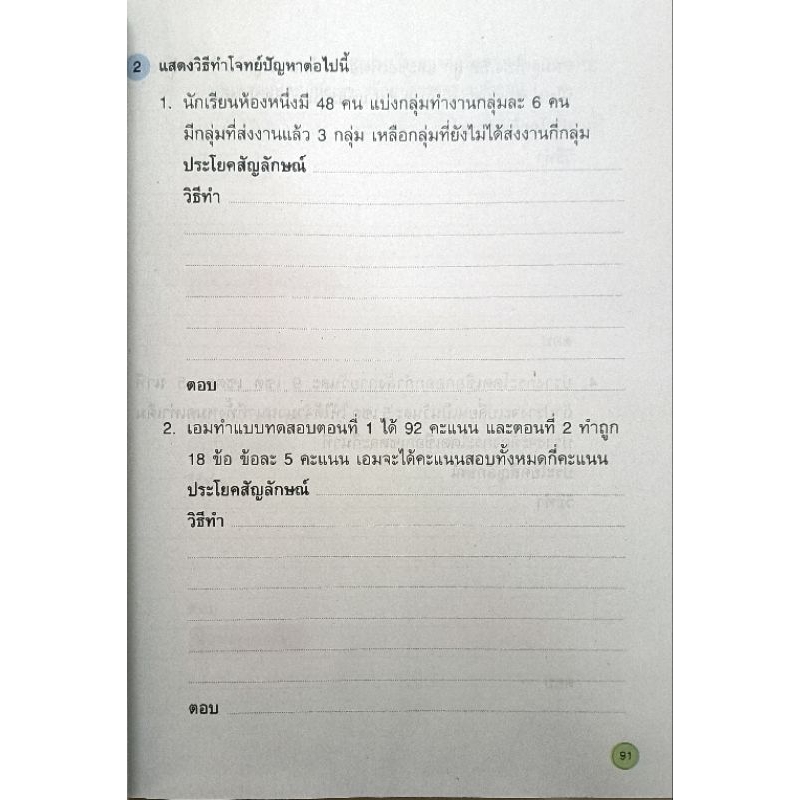 2 แสดงวิธีทำโจทย์ปัญหาต่อไปนี้
1. นักเรียนห้องหนึ่งมี 48 คน แบ่งกลุ่มทำงานกลุ่มละ 6 คน
มีกลุ่มที่ส่งงานแล้ว 3 กลุ่ม เหลือกลุ่มที่ยังไม่ได้ส่งงานกี่กลุ่ม
ประโยคสัญลักษณ์
วิธีทำ
ตอบ
2. เอมทำแบบทดสอบตอนที่ 1 ได้ 92 คะแนน และตอนที่ 2 ทำถูก
18 ข้อ ข้อละ 5 คะแนน เอมจะได้คะแนนสอบทั้งหมดกี่คะแนน
ประโยคสัญลักษณ์
วิธีทำ
ตอบ
91